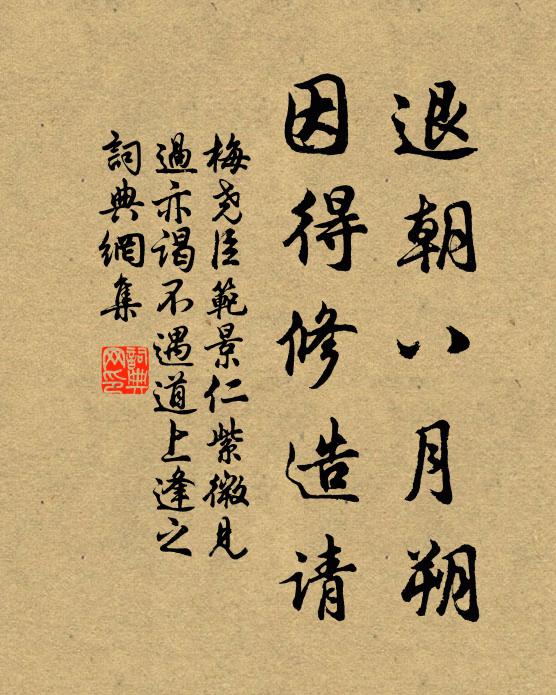 退朝八月朔
因得修造请
梅尧臣範景仁紫微見
過亦謁不遇道上逢之
詞典網集
詞典网印